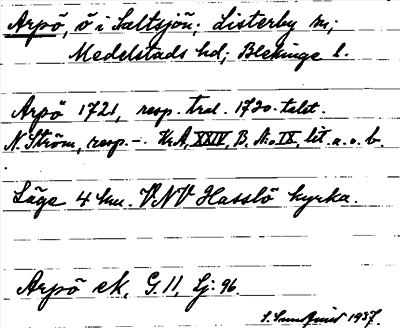 Arpö, ö i Saltsjön; Listerby sn;
Medelstads hd; Blekinge l.
Arpö 1721, resp. trad. 1720-talet.
N. Ström, resp. –. Kr.A, XXIV, B. No IX, lit. a. o. b.
Läge 4 km. VNV Hasslö kyrka.
Arpö ek, G. 11, Lj: 96
1937.